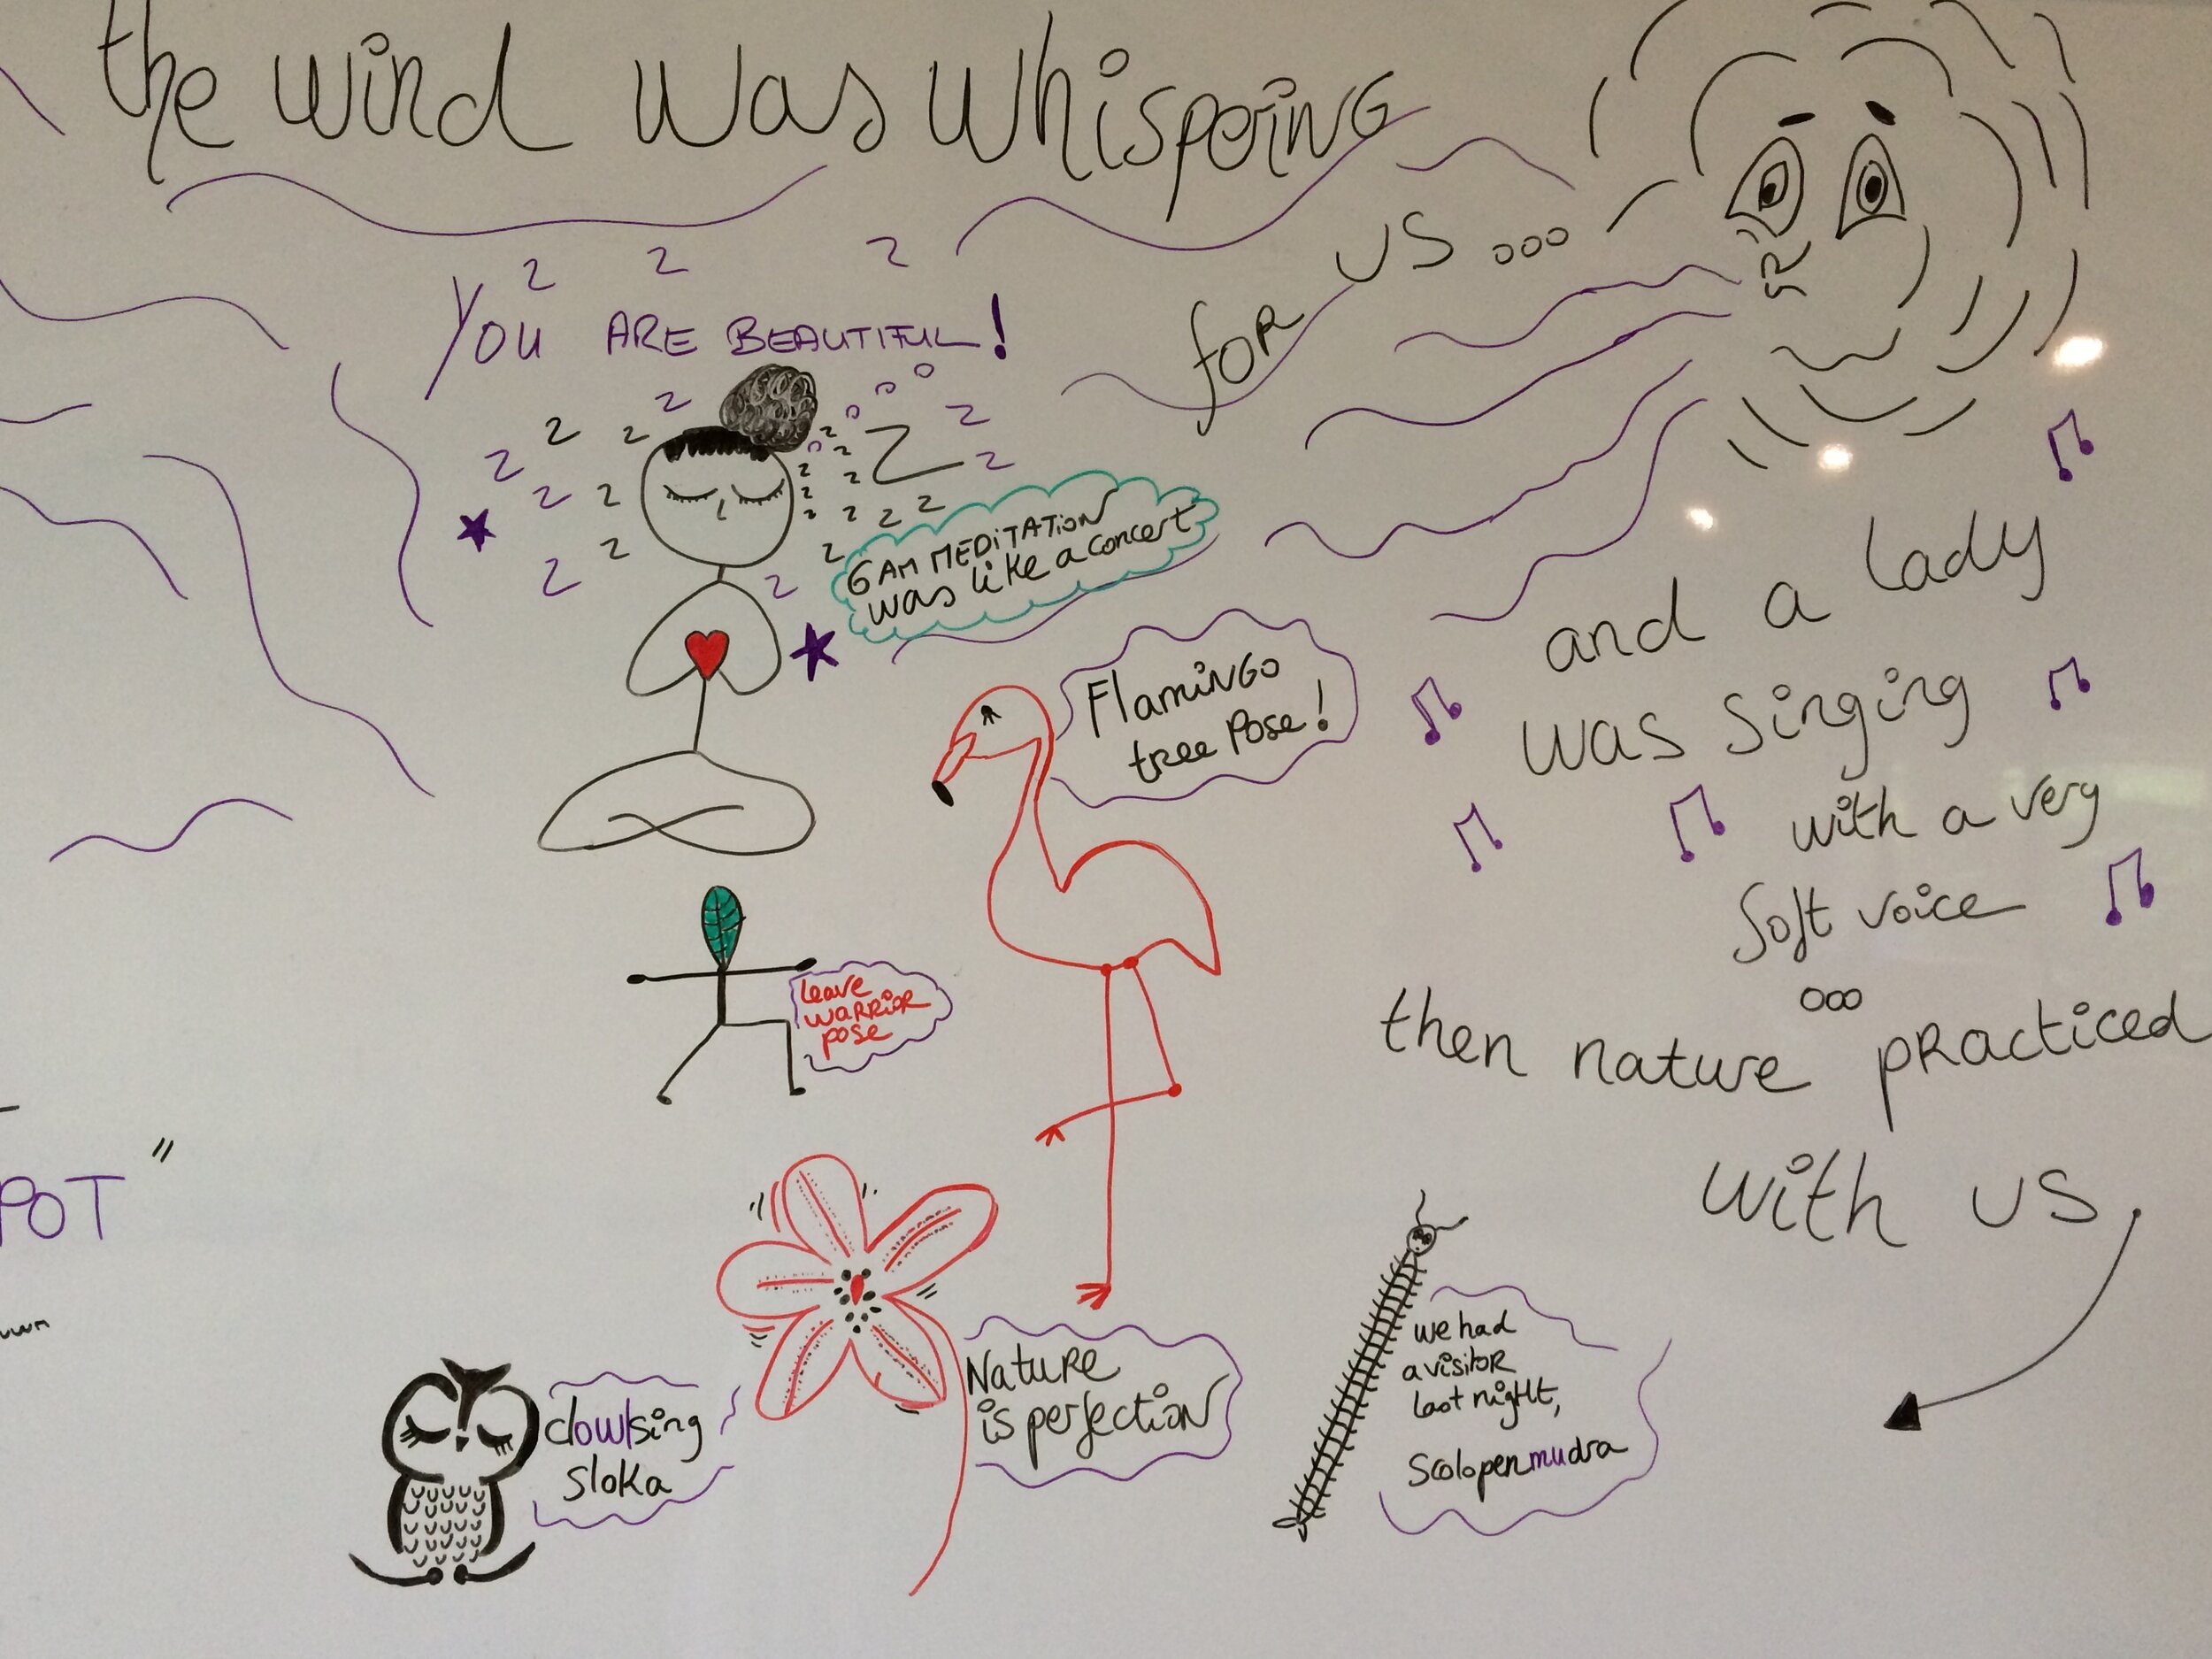 the wind was whispering
for us ...
YOU ARE BEAUTIFUL!
6 AM MEDITATION
was like a concert
and a lady
was singing
with a very
soft voice
...
then nature practiced
with us
Flamingo
tree Pose!
leave
warrior
pose
Nature
is perfection
clowlsing
sloka
we had
a visitor
last night,
Scolopenmudra
POT "